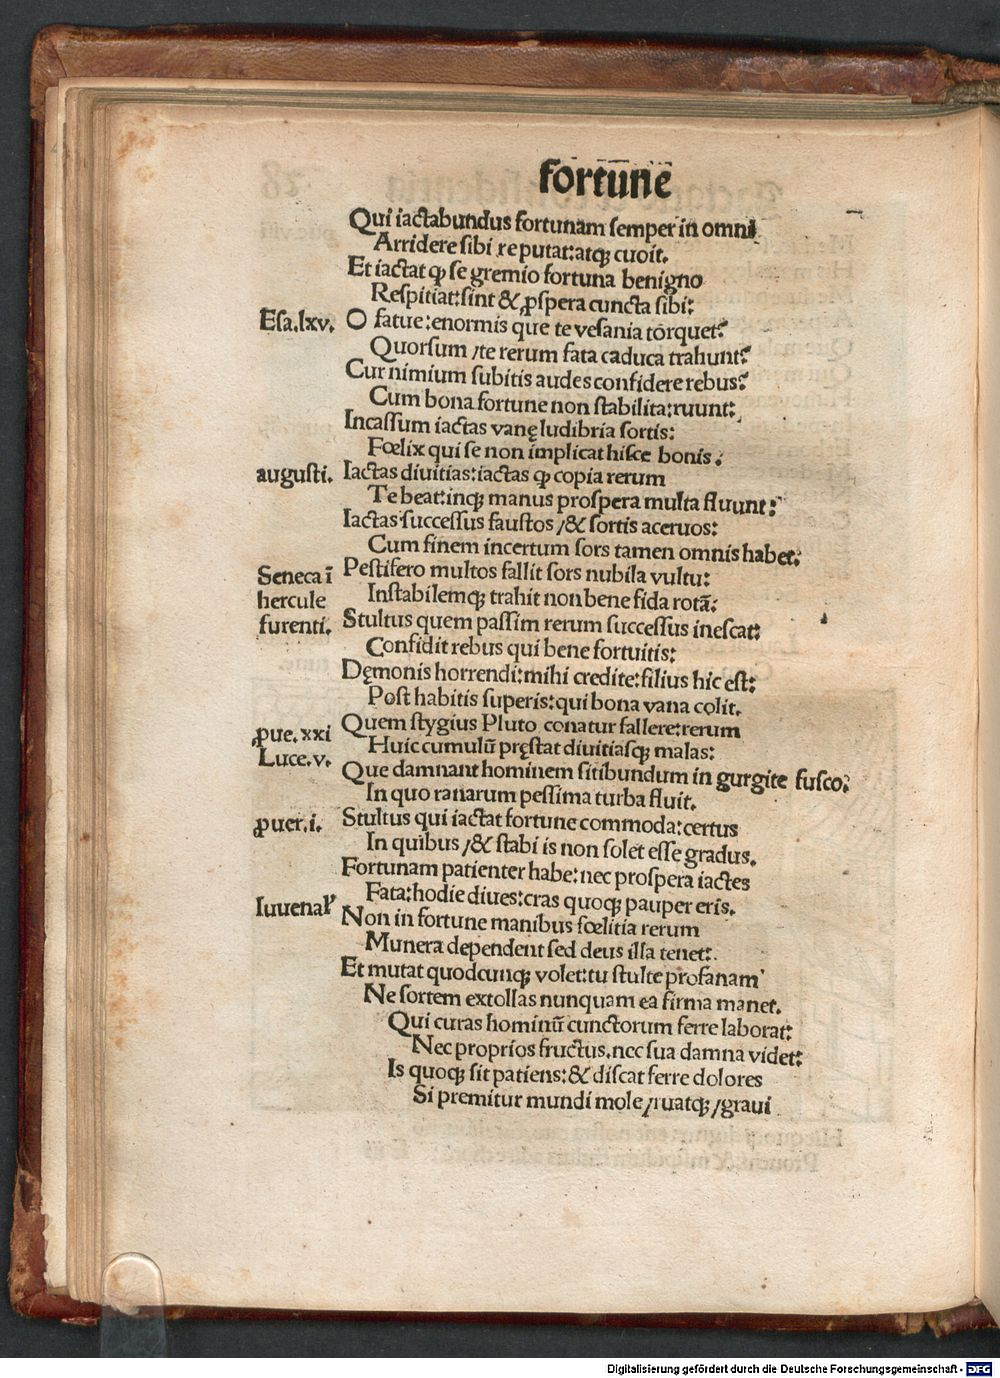 fortune
Qui iactabundus fortunam semper in omni
Arridere sibi reputat: atqꝫ cuoit.
Et iactat ꝙ se gremio fortuna benigno
Respitiat: sint & ꝓspera cuncta sibi:
Esa. lxv. O fatue: enormis que te vesania torquet?
Quorsum / te rerum fata caduca trahunt?
Cur nimium subitis audes confidere rebus?
Cum bona fortune non stabilita: ruunt:
Incassum iactas vanę ludibria sortis:
Fœlix qui se non implicat hisce bonis.
augusti. Iactas diuitias: iactas ꝙ copia rerum
Te beat: inqꝫ manus prospera multa fluunt:
Iactas successus faustos / & sortis aceruos:
Cum finem incertum sors tamen omnis habet.
Seneca ī Pestifero multos fallit sors nubila vultu:
hercule Instabilemqꝫ trahit non bene fida rotā:
furenti. Stultus quem passim rerum successus inescat:
Confidit rebus qui bene fortuitis:
Dęmonis horrendi: mihi credite: filius hic est:
Post habitis superis: qui bona vana colit.
Quem stygius Pluto conatur fallere: rerum
ꝓue. xxi Huic cumulū pręstat diuitiasqꝫ malas:
Luce. v. Que damnant hominem sitibundum in gurgite fusco:
In quo ranarum pessima turba fluit.
ꝓuer. i. Stultus qui iactat fortune commoda: certus
In quibus / & stabi is non solet esse gradus.
Fortunam patienter habe: nec prospera iactes
Fata: hodie diues: cras quoqꝫ pauper eris.
Iuuenal' Non in fortune manibus fœlitia rerum
Munera dependent sed deus illa tenet:
Et mutat quodcunqꝫ volet: tu stulte profanam
Ne sortem extollas nunquam ea firma manet.
Qui curas hominū cunctorum ferre laborat:
Nec proprios fructus. nec sua damna videt:
Is quoqꝫ sit patiens: & discat ferre dolores
Si premitur mundi mole / ruatqꝫ / graui
Digitalisierung gefördert durch die Deutsche Forschungsgemeinschaft - DFG